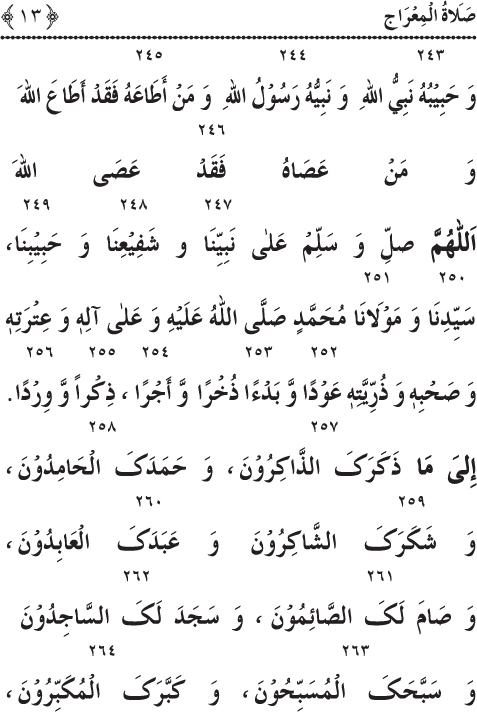 صَلَاةُ الْمِعْرَاج ﴿١٣﴾
٢٤٣ ٢٤٤ ٢٤٥
وَ حَبِيْبُهُ نَبِيُّ اللهِ وَ نَبِيُّهُ رَسُوْلُ اللهِ وَ مَنْ أَطَاعَهُ فَقَدْ أَطَاعَ اللهَ
٢٤٦
وَ مَنْ عَصَاهُ فَقَدْ عَصَى اللهَ
٢٤٧ ٢٤٨ ٢٤٩
اَللّٰهُمَّ صلِّ وَ سَلِّمْ عَلٰى نَبِيِّنَا و شَفِيْعِنَا وَ حَبِيْبِنَا،
٢٥٠ ٢٥١
سَيِّدِنَا وَ مَوْلَانَا مُحَمَّدٍ صَلَّى اللهُ عَلَيْهِ وَ عَلٰى آلِهٖ وَ عِتْرَتِهٖ
٢٥٢ ٢٥٣ ٢٥٤ ٢٥٥ ٢٥٦
وَ صَحْبِهٖ وَ ذُرِّيَّتِهٖ عَوْدًا وَّ بَدْءًا ذُخْرًا وَّ أَجْرًا ، ذِكْراً وَّ وِرْدًا.
٢٥٧ ٢٥٨
إِلىَ مَا ذَكَرَكَ الذَّاكِرُوْنَ، وَ حَمَدَكَ الْحَامِدُوْنَ،
٢٥٩ ٢٦٠
وَ شَكَرَكَ الشَّاكِرُوْنَ وَ عَبَدَكَ الْعَابِدُوْنَ،
٢٦١ ٢٦٢
وَ صَامَ لَكَ الصَّائِمُوْنَ ، وَ سَجَدَ لَكَ السَّاجِدُوْنَ
٢٦٣ ٢٦٤
وَ سَبَّحَكَ الْمُسَبِّحُوْنَ، وَ كَبَّرَكَ الْمُكَبِّرُوْنَ،